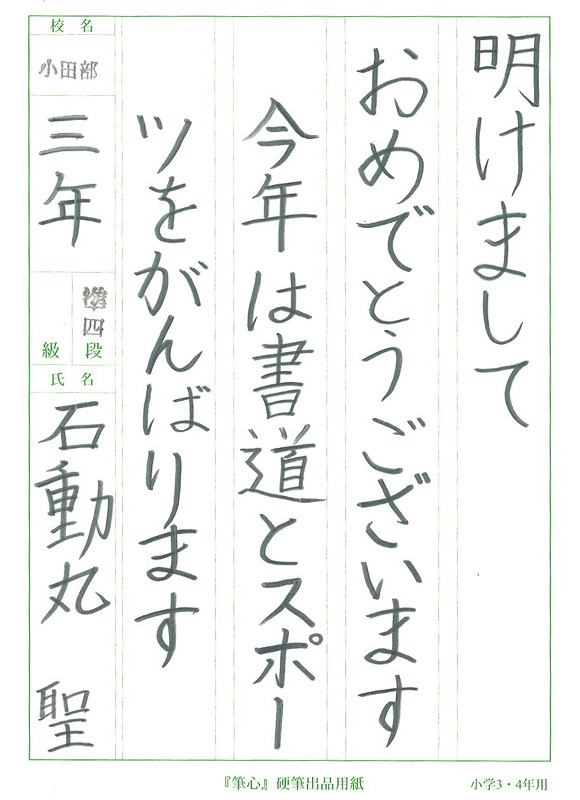 明けまして
おめでとうございます
今年は書道とスポー
ツをがんばります
校名
小田部
三年
準四
級 段
氏名
石動丸 聖
『筆心』硬筆出品用紙
小学3・4年用